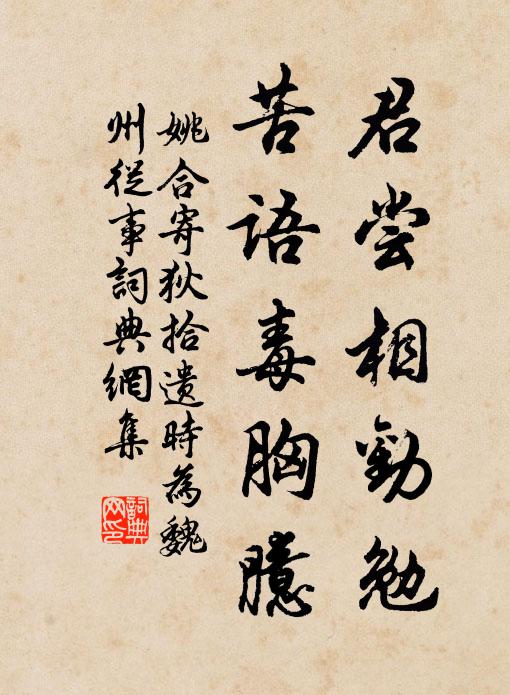 君尝相勸勉
苦語毒胸臆
姚合寄狄拾遺時為魏
州從事詞典網集
詞典
网印